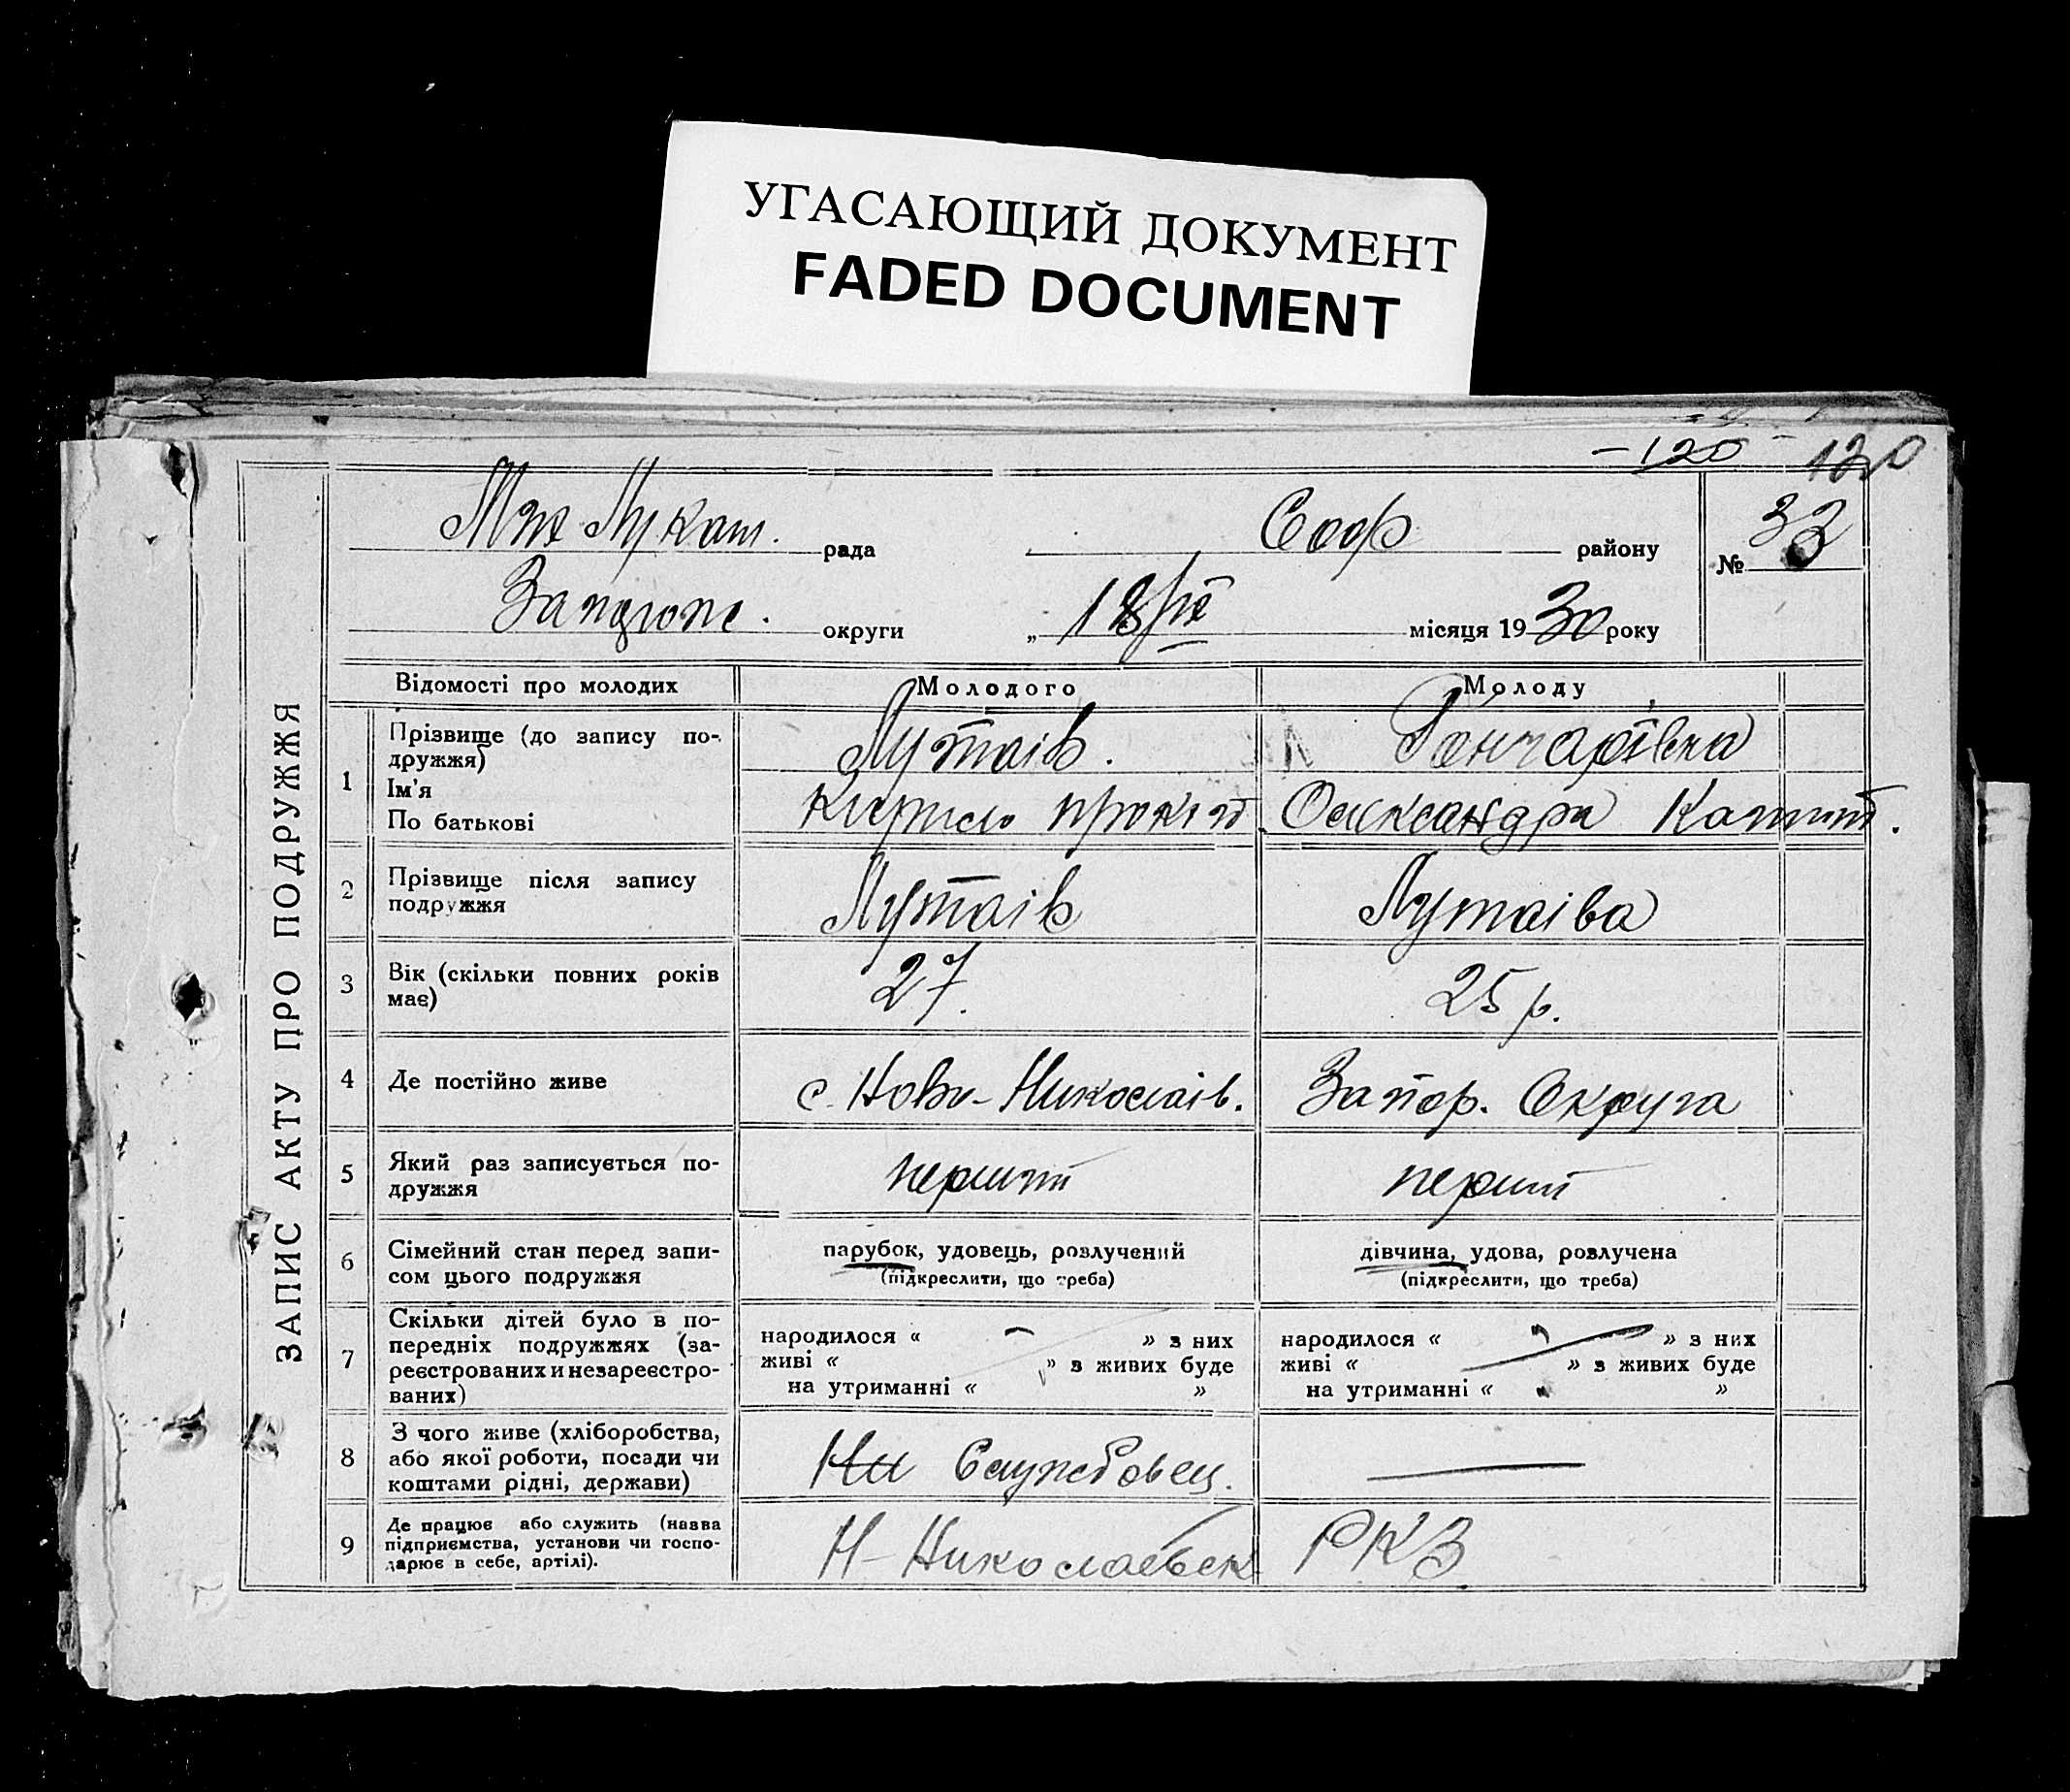 УГАСАЮЩИЙ ДОКУМЕНТ
FADED DOCUMENT
–120– 120
ЗАПИС АКТУ ПРО ПОДРУЖЖЯ
рада Соф району № 33
округи „ 18/IX місяця 1930 року
Відомості про молодих Молодого Молоду
1 Прізвище (до запису по-
дружжя) Лутаів. Гончарівна
Ім'я
По батькові Кирило Прокіп. Олександра
2 Прізвище після запису
подружжя Лутаів Лутаіва
3 Вік (скільки повних років
має) 27. 25 р.
4 Де постійно живе с. Ново-Николаів. Запор. Округа
5 Який раз записується по-
дружжя перший перший
6 Сімейний стан перед запи-
сом цього подружжя
парубок, удовець, розлучений
(підкреслити, що треба)
дівчина, удова, розлучена
(підкреслити, що треба)
7 Скільки дітей було в по-
передніх подружжях (за-
реєстрованих и незареєстро-
ваних)
народилося « » з них
живі « » з живих буде
на утриманні « »
народилося « » з них
живі « » з живих буде
на утриманні « »
8 З чого живе (хліборобства,
або якої роботи, посади чи
коштами рідні, держави) Службовец. —
9 Де працює або служить (назва
підприємства, установи чи госпо-
дарює в себе, артілі). Н-Николаевск РКЗ